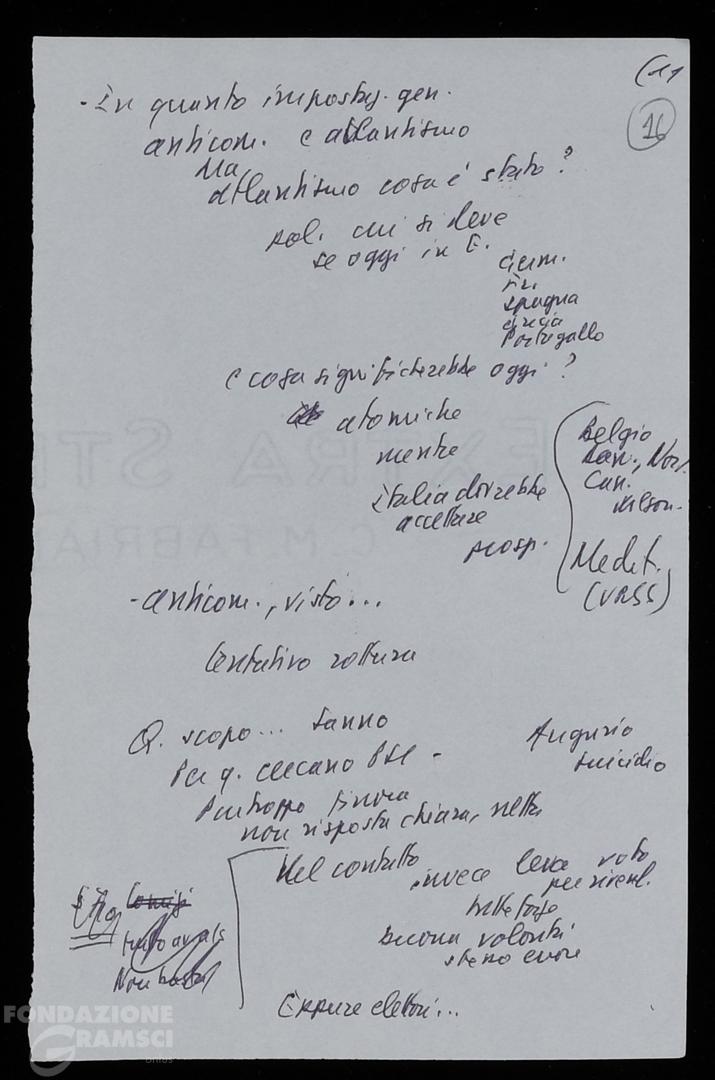 (11
16
- In quanto impostaz. gen.
anticom. e atlantismo
Ma
atlantismo cosa è stato?
pol. cui si deve
se oggi in E.
Germ.
Spagna
Grecia
Portogallo
e cosa significherebbe oggi?
atomiche
mentre
Italia dovrebbe
accettare
prosp.
Belgio
Dan., Norv.
Can.
Wilson.
Medit.
(URSS)
- anticom., visto...
tentativo rottura
Q. scopo... sanno
Per q. cercano PSI -
Augurio
suicidio
Purtroppo finora
non risposta chiara, netta
Nel contatto
invece leva voto
per
tutte forze
buona volontà
Comizi
tuttavia
Non basta
Eppure elettori...
EXTRA ST
C.M.FABRIA
FONDAZIONE
GRAMSCI
onlus